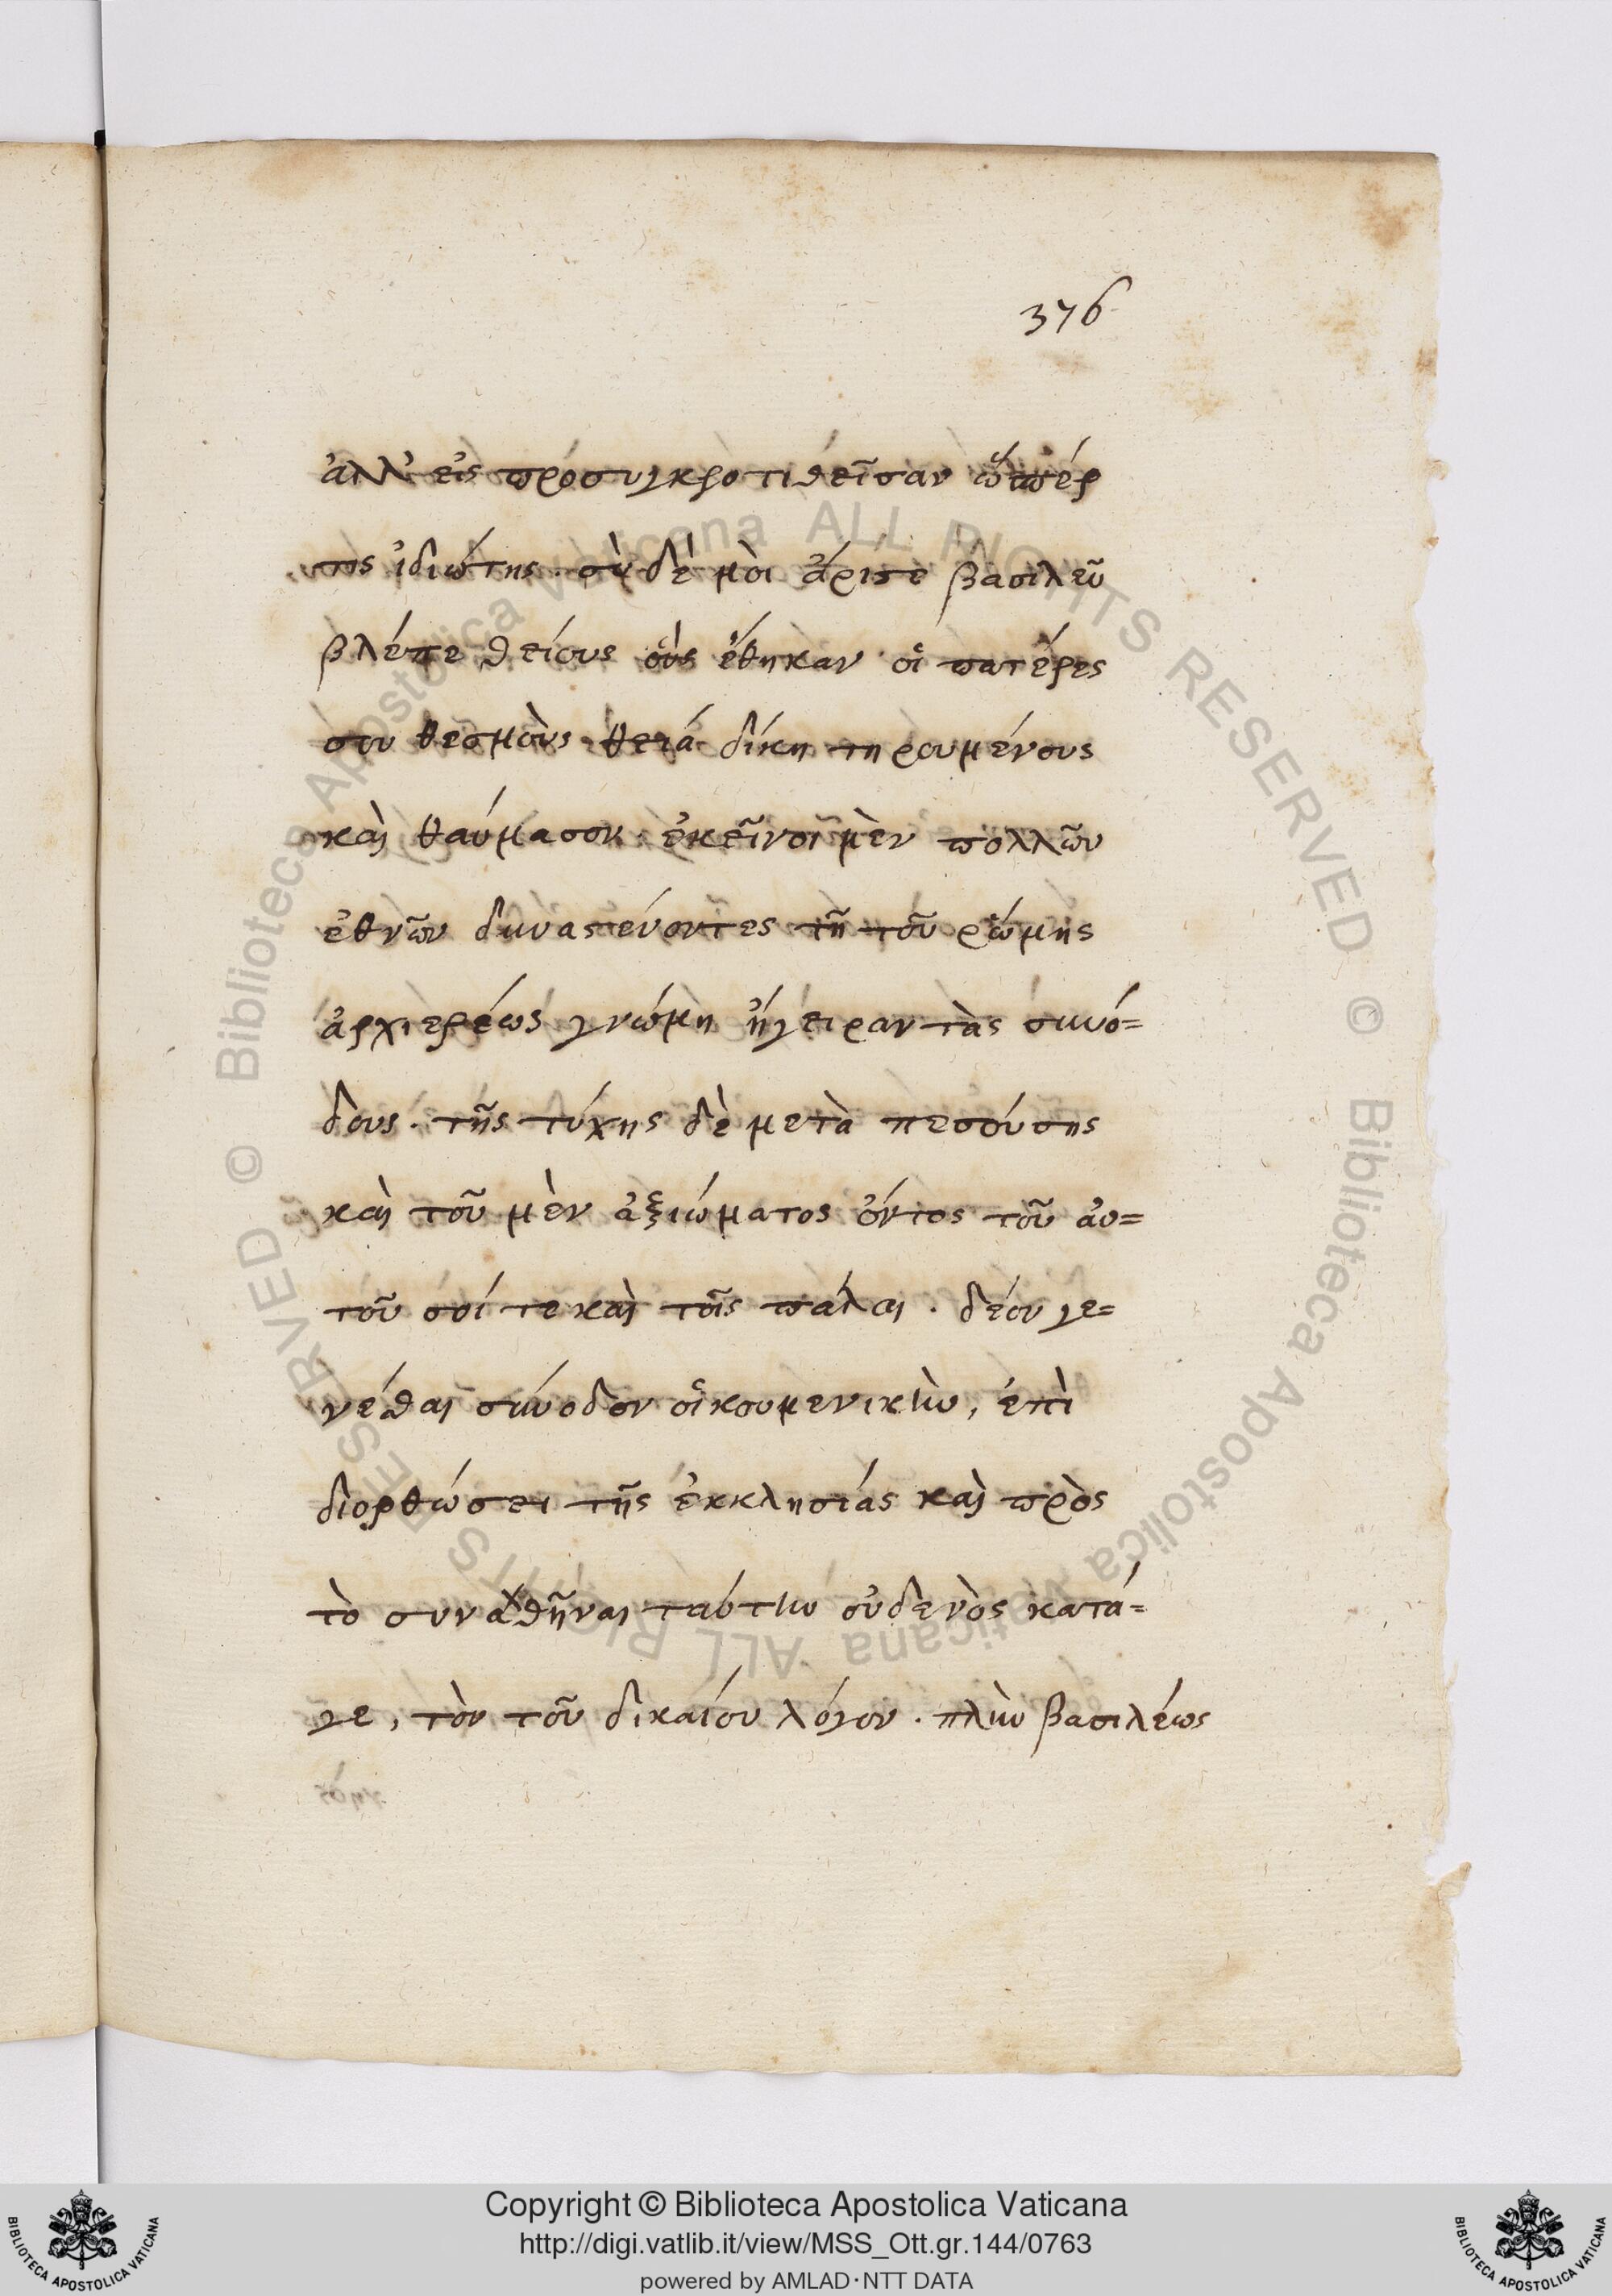 376
ἀλλ' εἰς πρόσυγκροτιθεῖσαν ὥσπέρ
τις ἰδιώτης. σὺ δέ μοι ἄριστε βασιλεῦ
βλέπε θείους οὓς ἔθηκαν οἱ πατέρες
σου θεσμοὺς θειά δίκη τηρουμένους
καὶ θαύμασον. ἐκεῖνοι μὲν πολλῶν
ἐθνῶν δυναστεύοντες τῇ τοῦ ῥώμης
ἀρχιερέως γνώμῃ ἤγειραν τὰς συνό=
δους. τῆς τύχης δὲ μετὰ πεσούσης
καὶ τοῦ μὲν ἀξιώματος ὄντος τοῦ αὐ=
τοῦ σοί τε καὶ τοῖς πάλαι. δέον γε=
νέσθαι σύνοδον οἰκουμενικὴν, ἐπὶ
διορθώσει τῆς ἐκκλησίας καὶ πρὸς
τὸ συναχθῆναι ταύτην οὐδενὸς κατά=
γε, τὸν τοῦ δικαίου λόγον. πλὴν βασιλέως
Copyright © Biblioteca Apostolica Vaticana
http://digi.vatlib.it/view/MSS_Ott.gr.144/0763
powered by AMLAD·NTT DATA
BIBLIOTECA APOSTOLICA VATICANA
BIBLIOTECA APOSTOLICA VATICANA
© Biblioteca Apostolica Vaticana ALL RIGHTS RESERVED
© Biblioteca Apostolica Vaticana ALL RIGHTS RESERVED